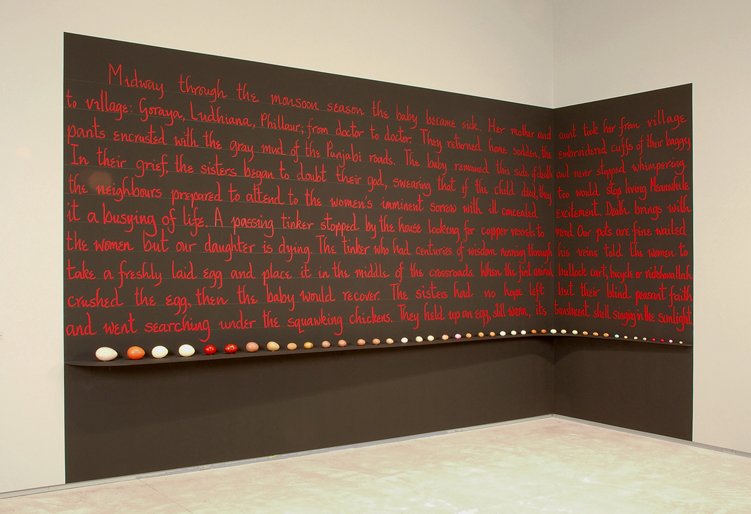 Midway through the monsoon season the baby became sick. Her mother and aunt took her from village
to village: Goraya, Ludhiana, Phillaur; from doctor to doctor. They returned home sodden, the embroidered cuffs of their baggy
pants encrusted with the gray mud of the Punjabi roads. The baby remained this side of death and never stopped whimpering.
In their grief, the sisters began to doubt their god, swearing that if the child died, they too would stop living. Meanwhile
the neighbours prepared to attend to the women's imminent sorrow with ill concealed excitement. Death brings with
it a busying of life. A passing tinker stopped by the house looking for copper vessels to mend. Our pots are fine wailed
the women but our daughter is dying. The tinker who had centuries of wisdom running through his veins told the women to
take a freshly laid egg and place it in the middle of the crossroads. When the first animal, bullock cart, bicycle or rickshawallah
crushed the egg, then the baby would recover. The sisters had no hope left but their blind peasant faith
and went searching under the squawking chickens. They held up an egg, still warm, its translucent shell singing in the sunlight.